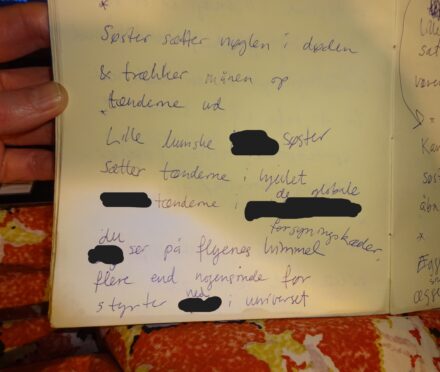 *
Søster sætter nøglen i døden
& trækker månen op
* tænderne ud
Lille lumske søster
Sætter tænderne i hjulet
tænderne i de globale
forsyningskæder
du
ser på flyenes himmel
flere end nogensinde før
styrter ned i universet
Lille
*